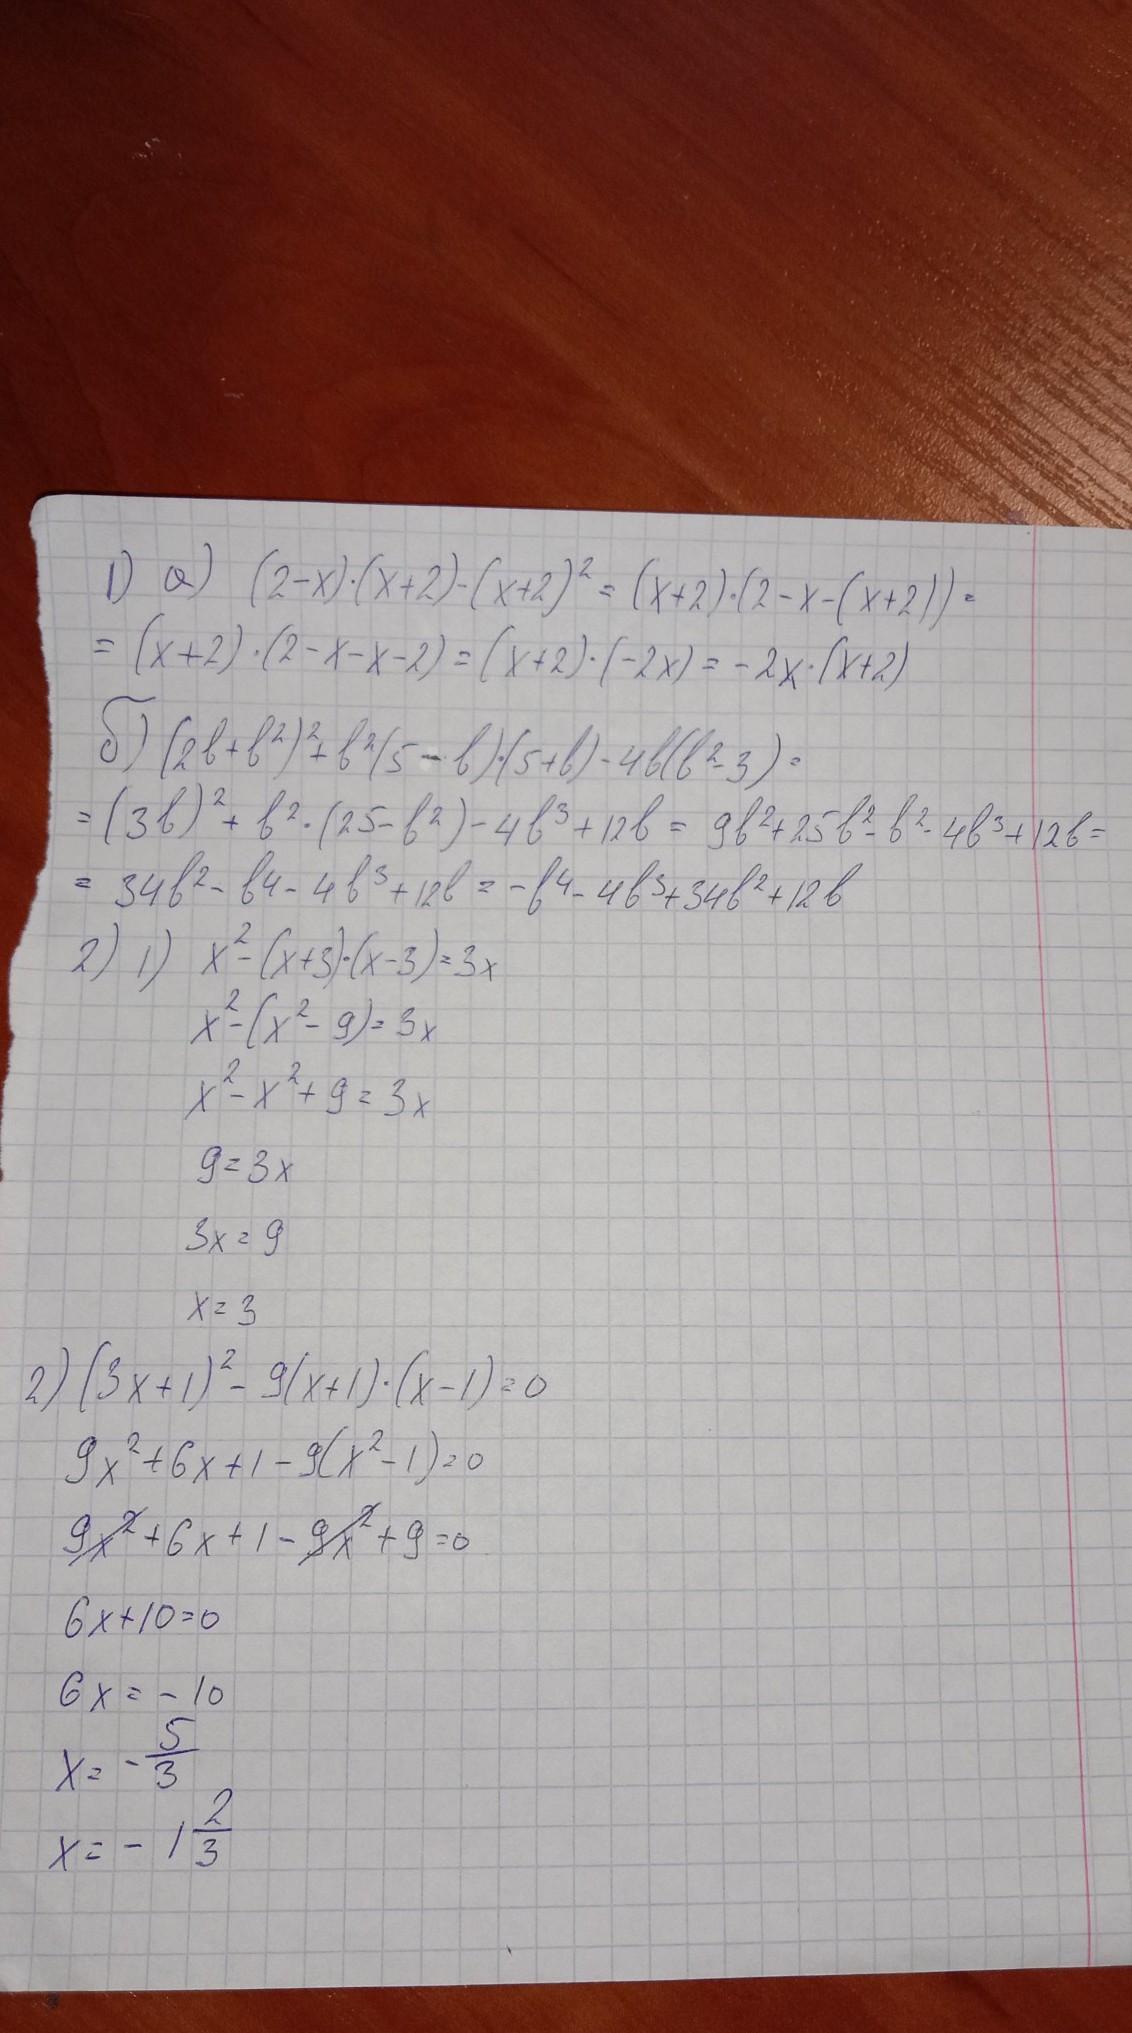 1) а) (2-x)·(x+2)-(x+2)² = (x+2)·(2-x-(x+2)) =
= (x+2)·(2-x-x-2) = (x+2)·(-2x) = -2x·(x+2)
б) (2b+b²)²+b²(5-b)·(5+b)-4b(b²-3) =
= (3b)²+b²·(25-b²)-4b³+12b = 9b²+25b²-b²-4b³+12b =
= 34b²-b4-4b³+12b = -b⁴-4b³+34b²+12b
2) 1) x²-(x+3)·(x-3)=3x
x²-(x²-9)=3x
x²-x²+9=3x
9=3x
3x=9
x=3
2) (3x+1)²-9(x+1)·(x-1)=0
9x²+6x+1-9(x²-1)=0
9x²+6x+1-9x²+9=0
6x+10=0
6x=-10
x=-5/3
x=-1 2/3